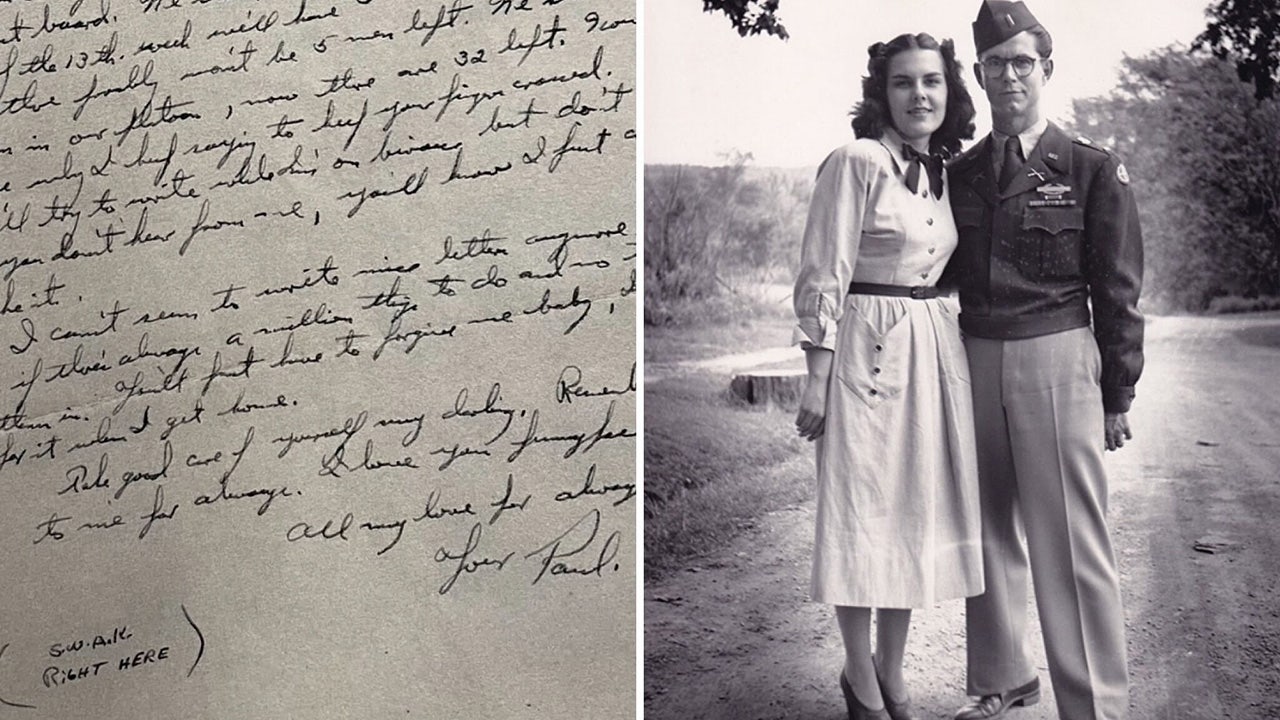 t board. We
f the 13th. week we'll have
there probly won't be 5 men left. We
n in our platoon, now there are 32 left.
why I keep saying to keep your fingers crossed.
'll try to write while I'm on bivouac but don't
you don't hear from me, you'll know I just
he it.
I can't seem to write nice letters anymore
if there's always a million things to do and no
them in. You'll just have to forgive me baby,
for it when I get home.
Take good care of yourself my darling. Rememb
to me for always. I love you funnyface
All my love for always
Your Paul.
( S.W.A.K.
RIGHT HERE )